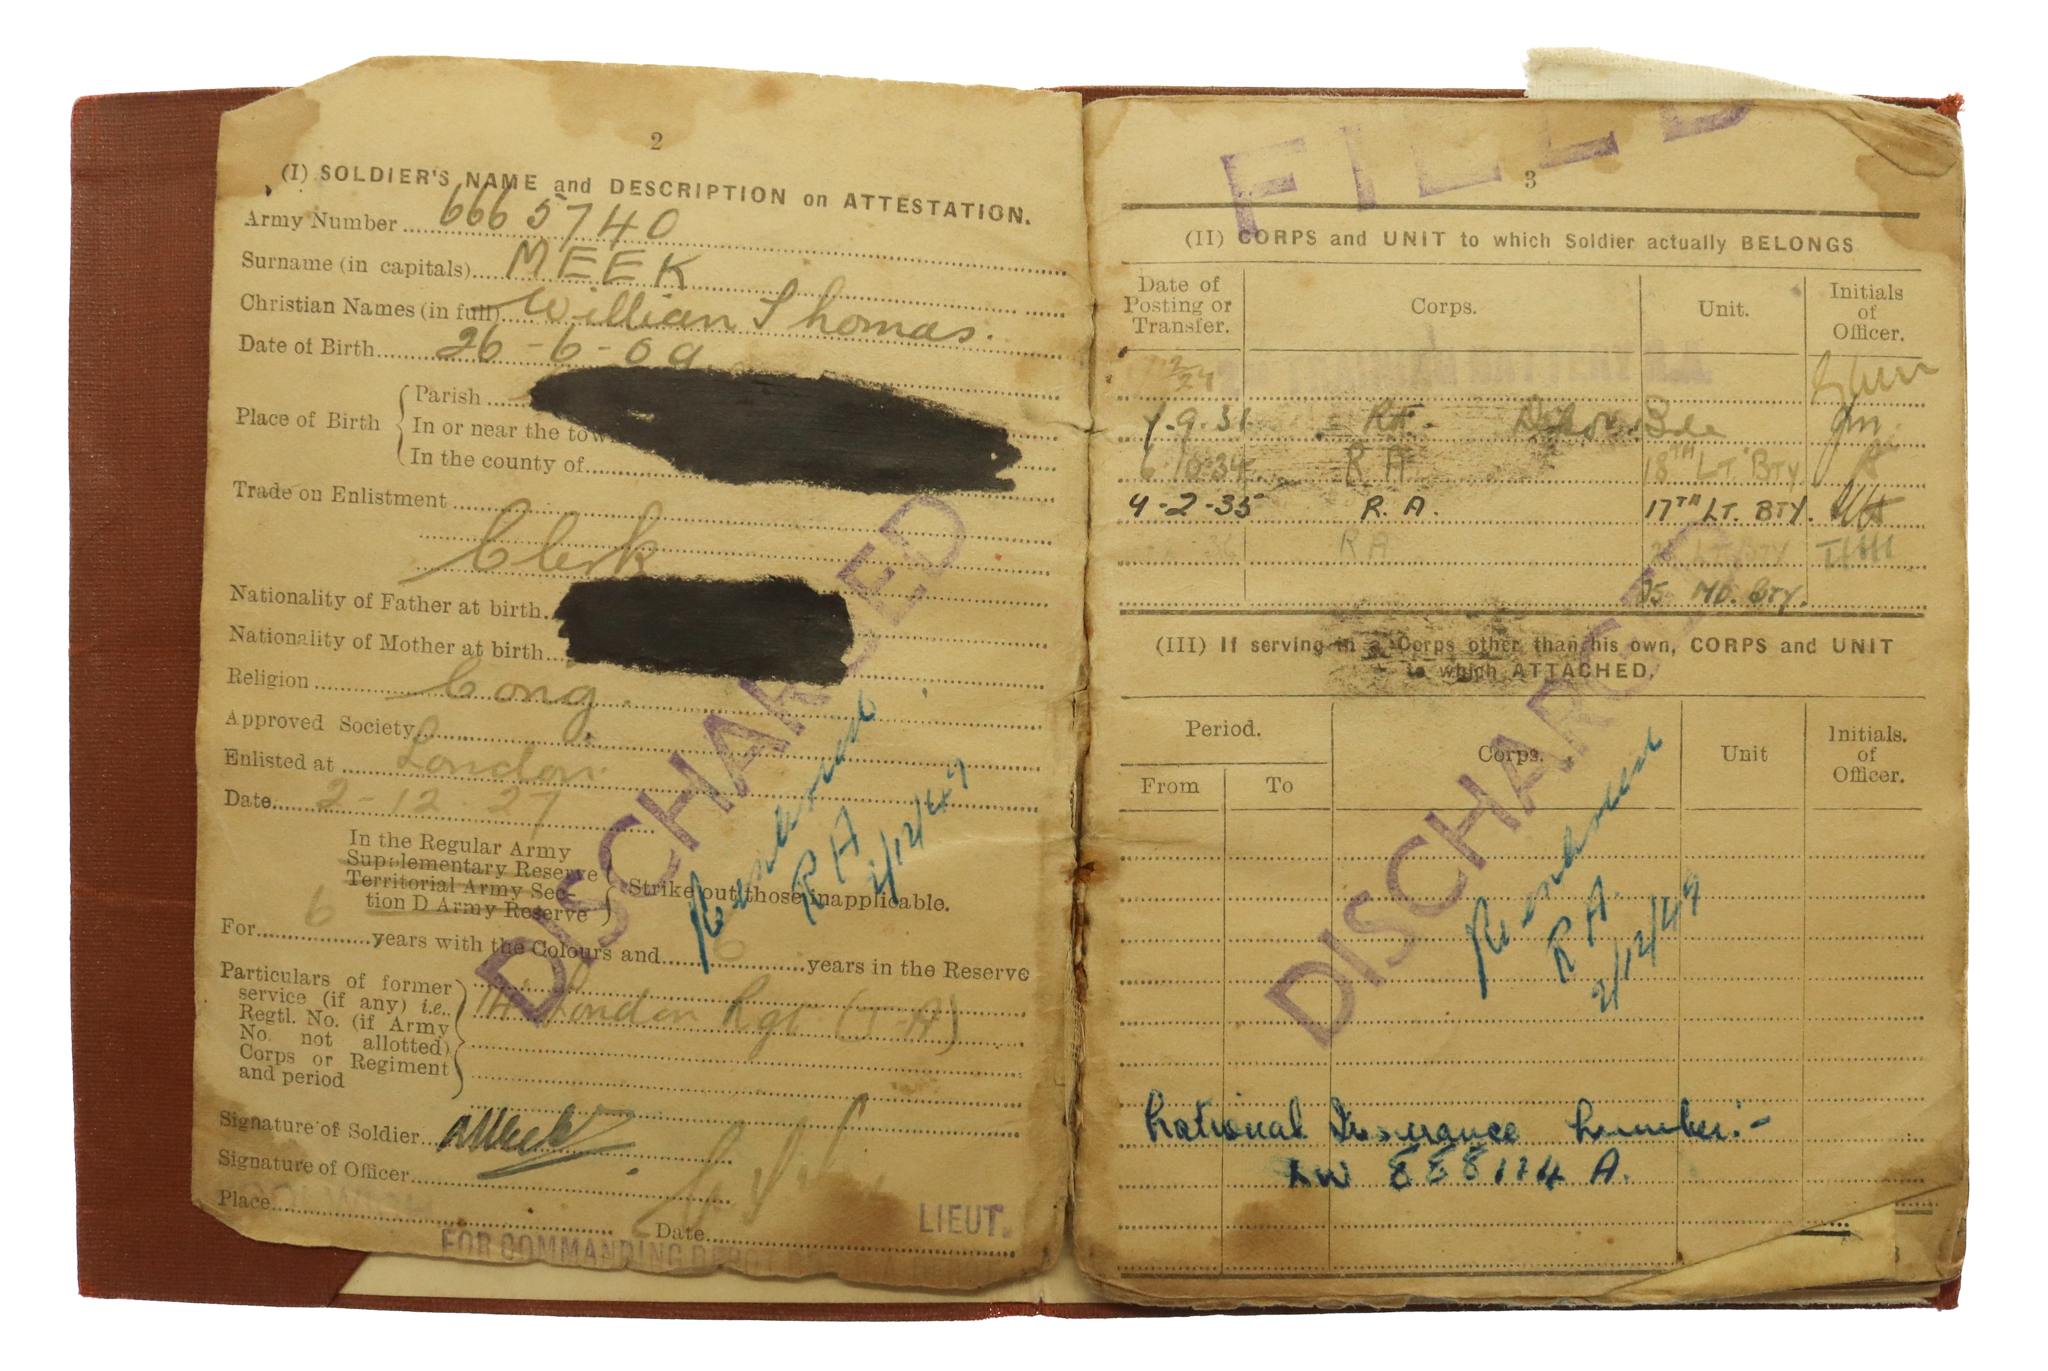 2
(I) SOLDIER'S NAME and DESCRIPTION on ATTESTATION.
Army Number 6665740
Surname (in capitals) MEEK
Christian Names (in full) William Thomas.
Date of Birth 26-6-09
Place of Birth
Parish
In or near the tow
In the county of
Trade on Enlistment
Clerk
Nationality of Father at birth
Nationality of Mother at birth
Religion Cong.
Approved Society
Enlisted at London
Date 2-12-27
In the Regular Army
Supplementary Reserve
Territorial Army Sec-
tion D Army Reserve
Strike out those inapplicable.
For 6 years with the Colours and 6 years in the Reserve
Particulars of former
service (if any) i.e.,
Regtl. No. (if Army
No. not allotted)
Corps or Regiment
and period
London Rgt (T-A)
Signature of Soldier
Signature of Officer
Place
Date
LIEUT.
FOR COMMANDING DEPOT
DISCHARGED
RA
2/12/49
FIELD
3
(II) CORPS and UNIT to which Soldier actually BELONGS
Date of Posting or Transfer.
Corps.
Unit.
Initials of Officer.
TRAINING BATTERY R.A.
7.9.31 RA. Depot. Bde
6.10.34 RA 18TH LT. BTY
4-2-35 R.A. 17TH LT. BTY.
36 RA LT. BTY
MD. BTY.
(III) If serving in a Corps other than his own, CORPS and UNIT
to which ATTACHED.
Period.
From
To
Corps.
Unit
Initials. of Officer.
DISCHARGED
RA.
2/12/49
National Insurance Number:-
888174 A.